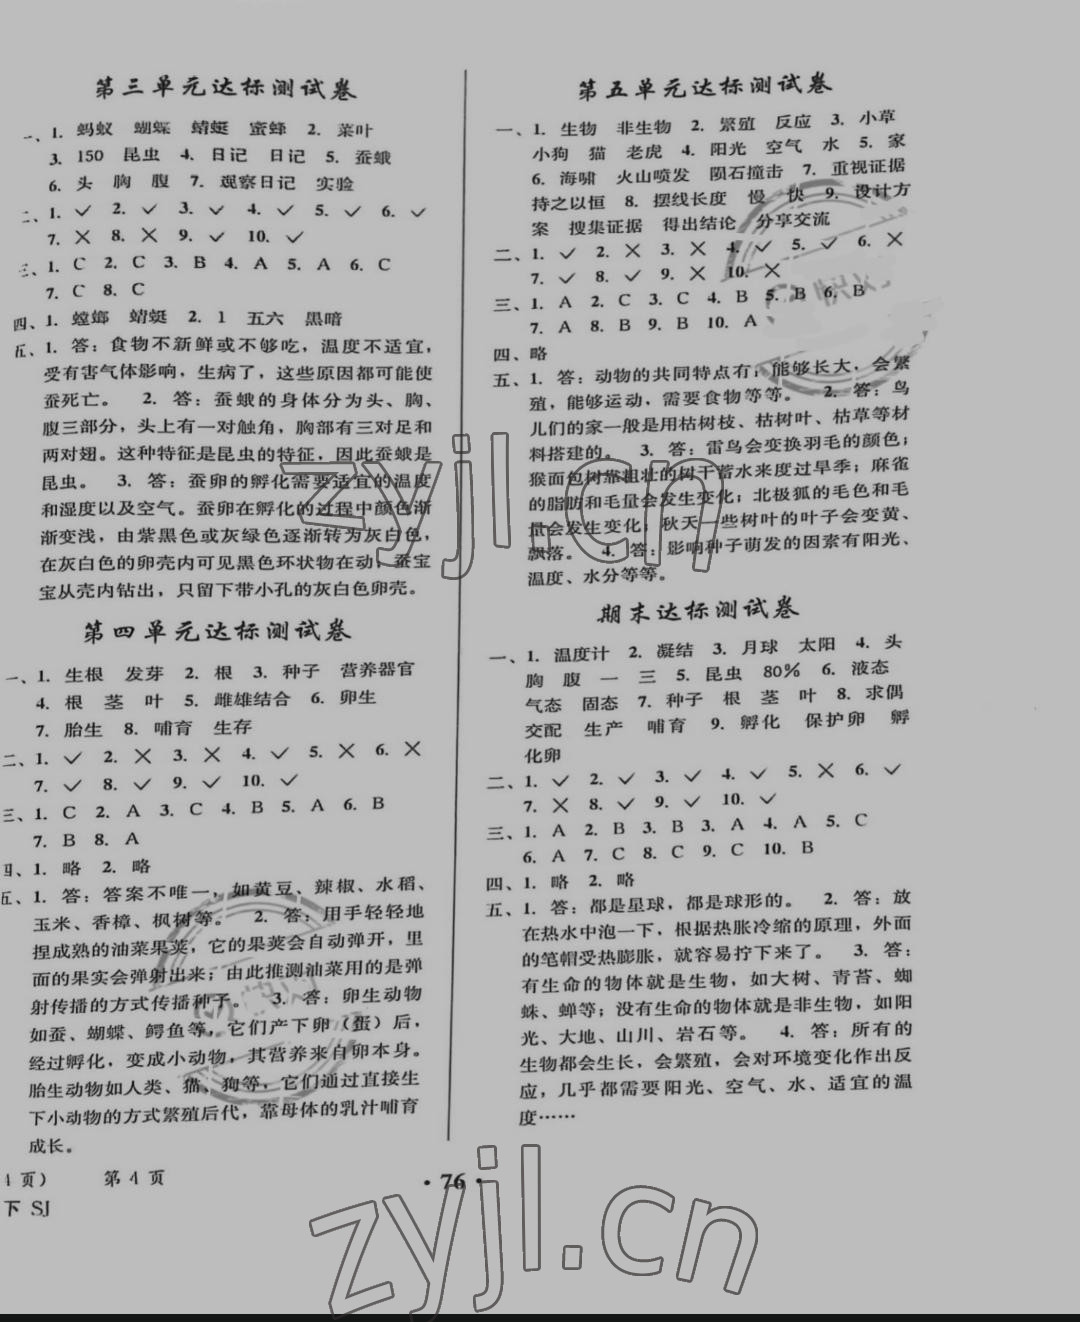 第三单元达标测试卷
一、1. 蚂蚁 蝴蝶 蜻蜓 蜜蜂 2. 菜叶
3. 150 昆虫 4. 日记 日记 5. 蚕蛾
6. 头 胸 腹 7. 观察日记 实验
二、1. ✓ 2. ✓ 3. ✓ 4. ✓ 5. ✓ 6. ✓
7. ✕ 8. ✕ 9. ✓ 10. ✓
三、1. C 2. C 3. B 4. A 5. A 6. C
7. C 8. C
四、1. 螳螂 蜻蜓 2. 1 五六 黑暗
五、1. 答：食物不新鲜或不够吃，温度不适宜，
受有害气体影响，生病了，这些原因都可能使
蚕死亡。 2. 答：蚕蛾的身体分为头、胸、
腹三部分，头上有一对触角，胸部有三对足和
两对翅。这种特征是昆虫的特征，因此蚕蛾是
昆虫。 3. 答：蚕卵的孵化需要适宜的温度
和湿度以及空气。蚕卵在孵化的过程中颜色渐
渐变浅，由紫黑色或灰绿色逐渐转为灰白色，
在灰白色的卵壳内可见黑色环状物在动，蚕宝
宝从壳内钻出，只留下带小孔的灰白色卵壳。
第四单元达标测试卷
一、1. 生根 发芽 2. 根 3. 种子 营养器官
4. 根 茎 叶 5. 雌雄结合 6. 卵生
7. 胎生 8. 哺育 生存
二、1. ✓ 2. ✕ 3. ✕ 4. ✓ 5. ✕ 6. ✕
7. ✓ 8. ✓ 9. ✓ 10. ✓
三、1. C 2. A 3. C 4. B 5. A 6. B
7. B 8. A
四、1. 略 2. 略
五、1. 答：答案不唯一，如黄豆、辣椒、水稻、
玉米、香樟、枫树等。 2. 答：用手轻轻地
捏成熟的油菜果荚，它的果荚会自动弹开，里
面的果实会弹射出来；由此推测油菜用的是弹
射传播的方式传播种子。 3. 答：卵生动物
如蚕、蝴蝶、鳄鱼等，它们产下卵（蛋）后，
经过孵化，变成小动物，其营养来自卵本身。
胎生动物如人类、猫、狗等，它们通过直接生
下小动物的方式繁殖后代，靠母体的乳汁哺育
成长。
第五单元达标测试卷
一、1. 生物 非生物 2. 繁殖 反应 3. 小草
小狗 猫 老虎 4. 阳光 空气 水 5. 家
6. 海啸 火山喷发 陨石撞击 7. 重视证据
持之以恒 8. 摆线长度 慢 快 9. 设计方
案 搜集证据 得出结论 分享交流
二、1. ✓ 2. ✕ 3. ✕ 4. ✓ 5. ✓ 6. ✕
7. ✓ 8. ✓ 9. ✕ 10. ✕
三、1. A 2. C 3. C 4. B 5. B 6. B
7. A 8. B 9. B 10. A
四、略
五、1. 答：动物的共同特点有：能够长大，会繁
殖，能够运动，需要食物等等。 2. 答：鸟
儿们的家一般是用枯树枝、枯树叶、枯草等材
料搭建的。 3. 答：雷鸟会变换羽毛的颜色；
猴面包树靠粗壮的树干蓄水来度过旱季；麻雀
的脂肪和毛量会发生变化；北极狐的毛色和毛
量会发生变化；秋天一些树叶的叶子会变黄、
飘落。 4. 答：影响种子萌发的因素有阳光、
温度、水分等等。
期末达标测试卷
一、1. 温度计 2. 凝结 3. 月球 太阳 4. 头
胸 腹 一 三 5. 昆虫 80% 6. 液态
气态 固态 7. 种子 根 茎 叶 8. 求偶
交配 生产 哺育 9. 孵化 保护卵 孵
化卵
二、1. ✓ 2. ✓ 3. ✓ 4. ✓ 5. ✕ 6. ✓
7. ✕ 8. ✓ 9. ✓ 10. ✓
三、1. A 2. B 3. B 3. A 4. A 5. C
6. A 7. C 8. C 9. C 10. B
四、1. 略 2. 略
五、1. 答：都是星球，都是球形的。 2. 答：放
在热水中泡一下，根据热胀冷缩的原理，外面
的笔帽受热膨胀，就容易拧下来了。 3. 答：
有生命的物体就是生物，如大树、青苔、蜘
蛛、蝉等；没有生命的物体就是非生物，如阳
光、大地、山川、岩石等。 4. 答：所有的
生物都会生长，会繁殖，会对环境变化作出反
应，几乎都需要阳光、空气、水、适宜的温
度……
页） 第 4 页
· 76 ·
下 SJ
zyjl.cn
zyjl.cn